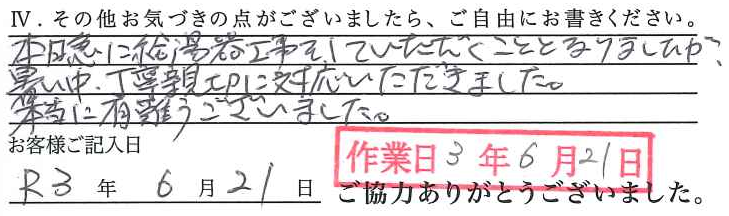 Ⅳ．その他お気づきの点がございましたら、ご自由にお書きください。
本日急に給湯器工事をしていただくこととなりましたが、
暑い中、丁寧親切に対応いただきました。
本当に有難うございました。
お客様ご記入日
作業日 3 年 6 月 21 日
R3 年 6 月 21 日 ご協力ありがとうございました。